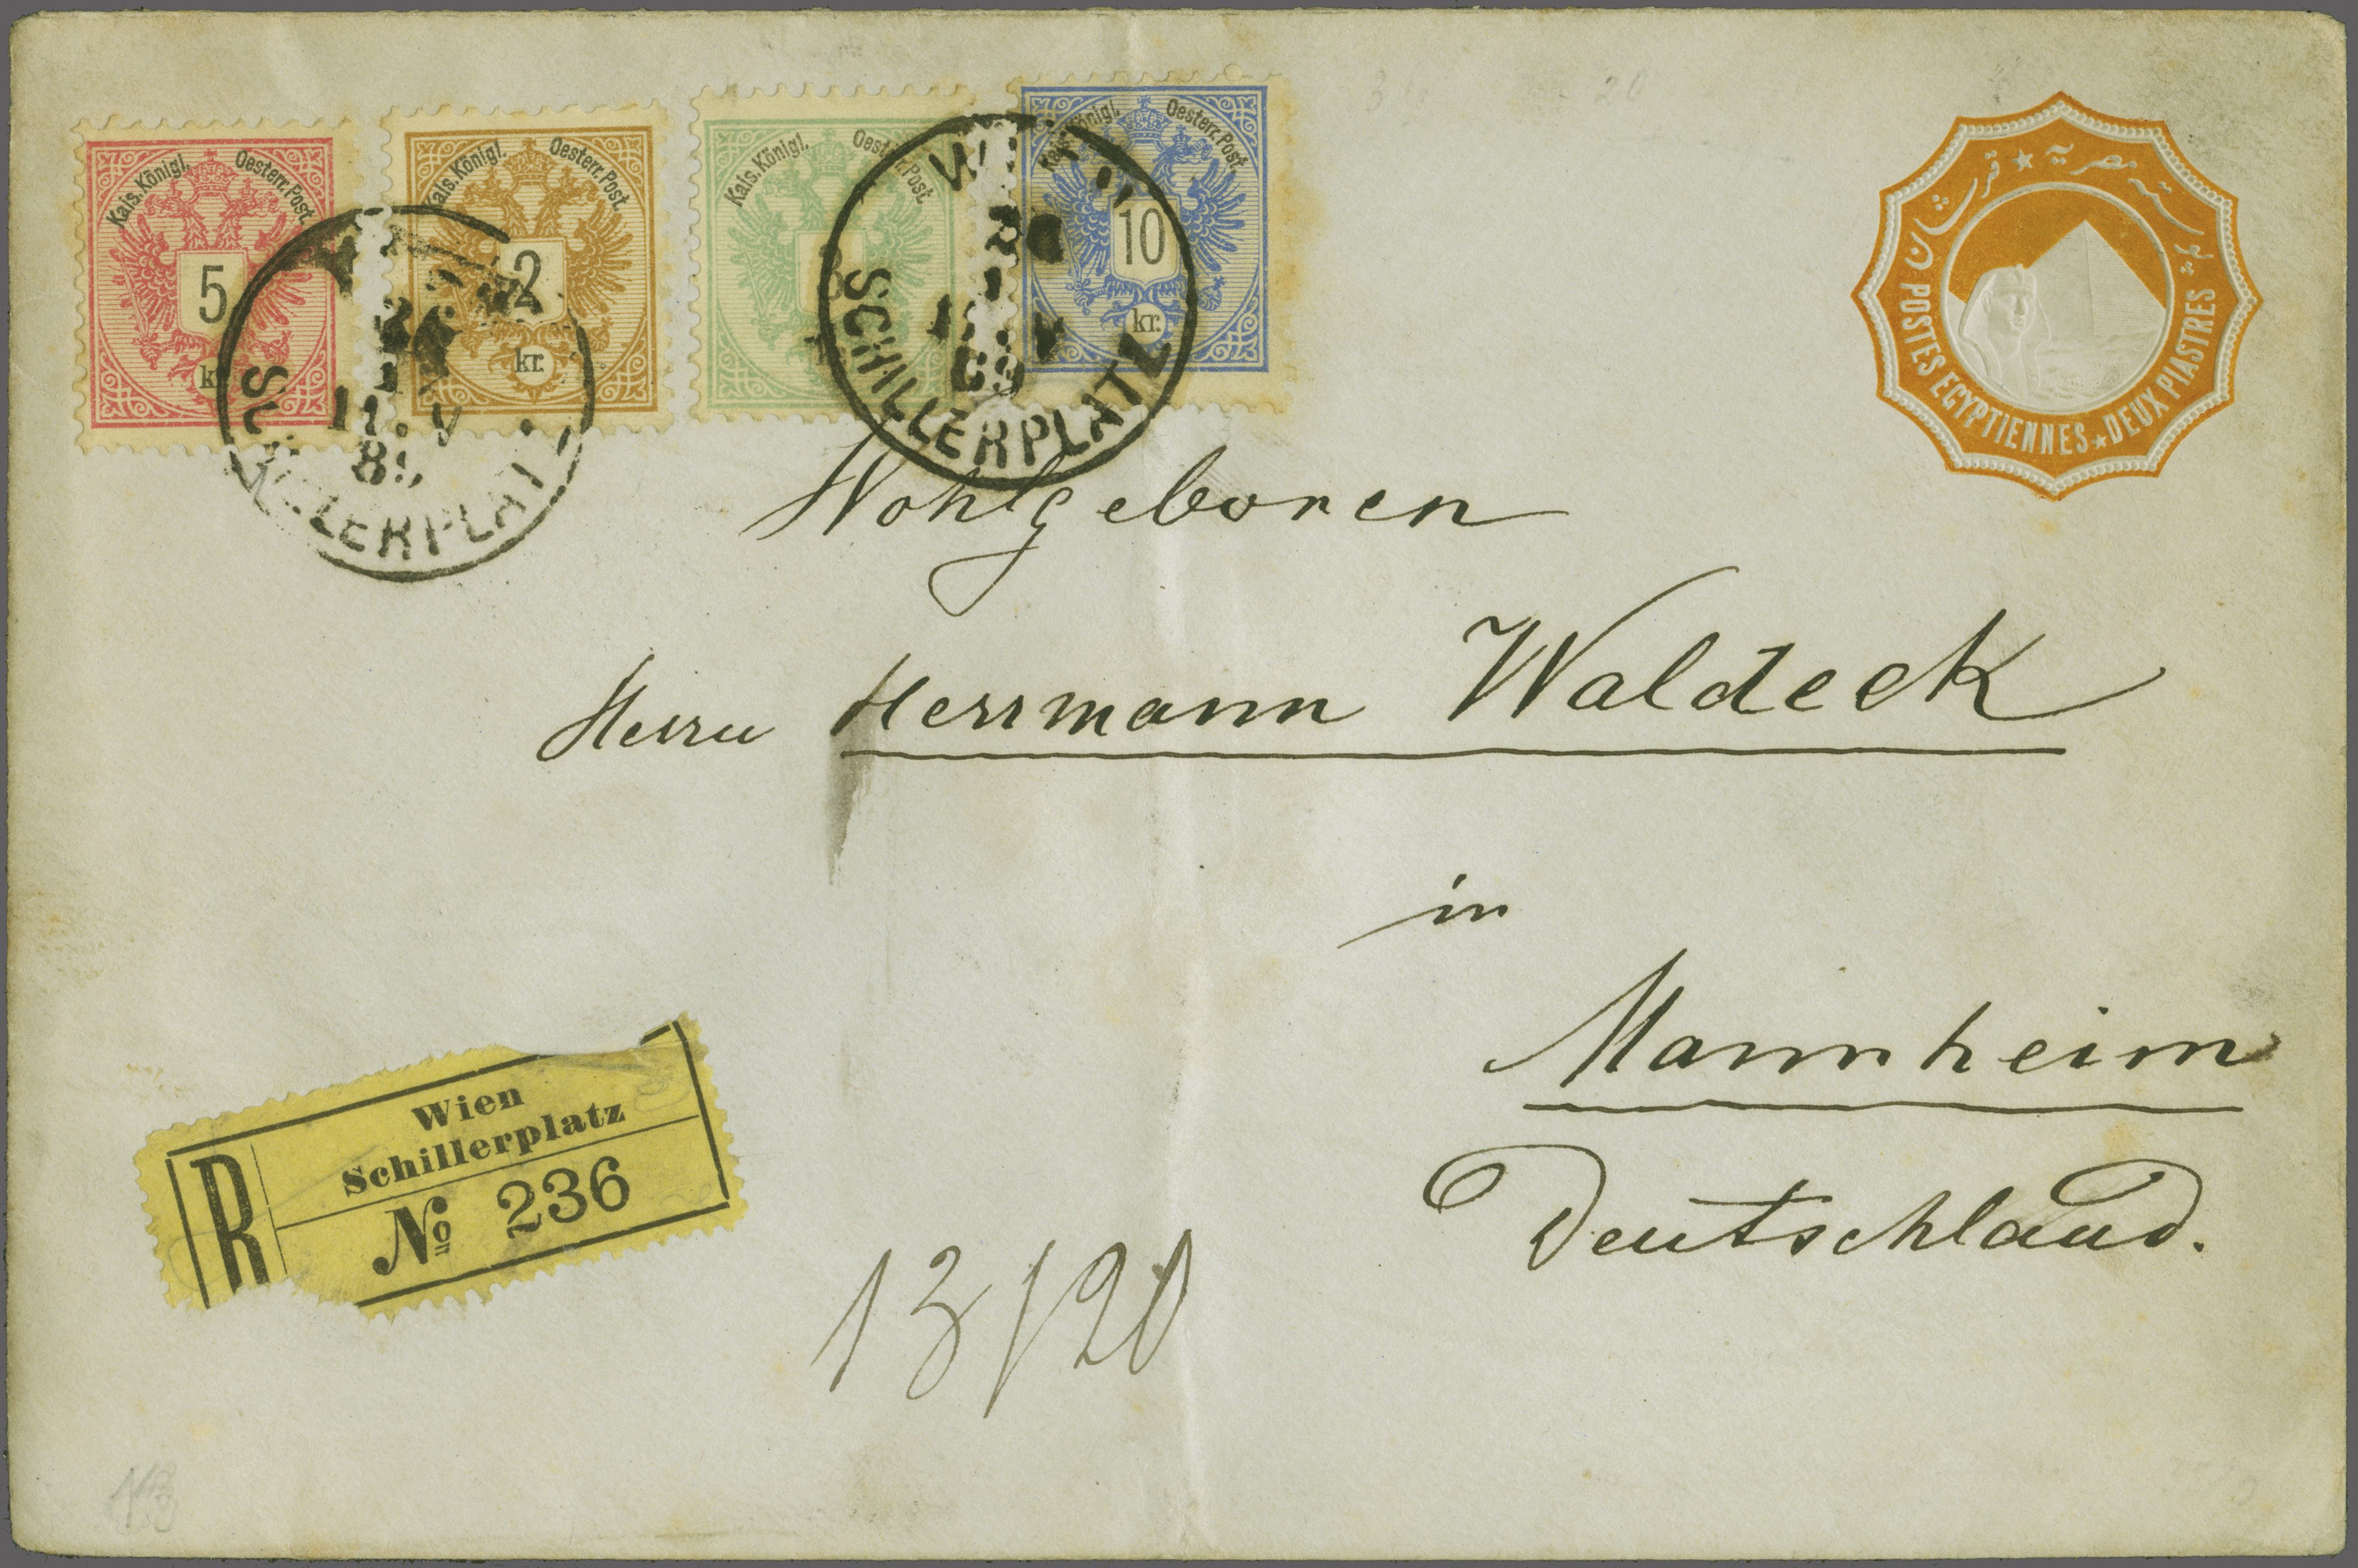 Kais. Königl. Oesterr. Post.
5
kr.
Kais. Königl. Oesterr. Post.
2
kr.
Kais. Königl. Oesterr. Post.
Kais. Königl. Oesterr. Post.
10
kr.
SCHILLERPLATZ
SCHILLERPLATZ
POSTES EGYPTIENNES ★ DEUX PIASTRES
Wohlgeboren
Herrn Herrmann Waldeck
in
Mannheim
Deutschland.
Wien
Schillerplatz
R
No 236
13/20